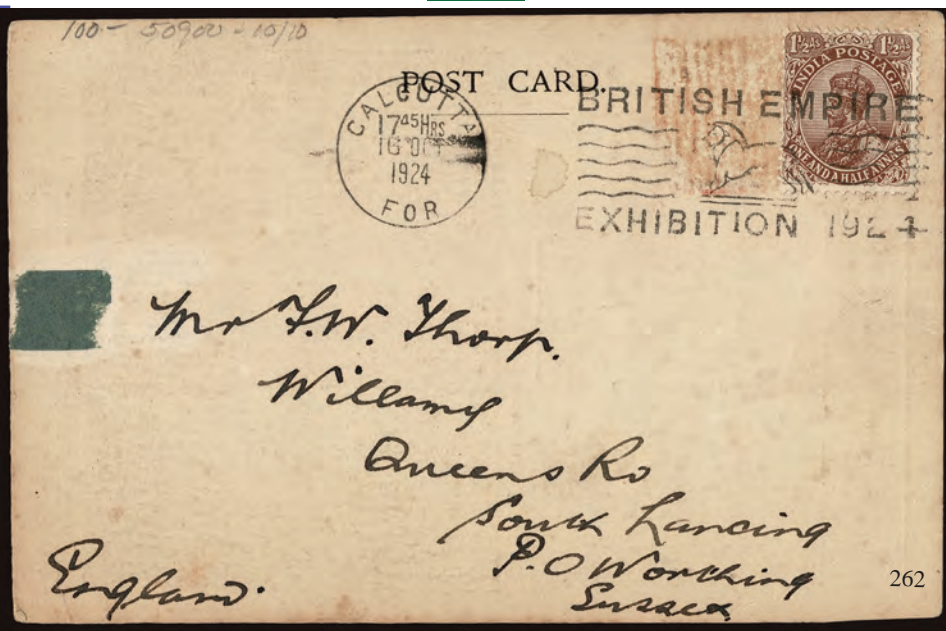 100 - 50900 - 10/10
POST CARD.
CALCUTTA
17 45 HRS
16 OCT
1924
FOR
BRITISH EMPIRE
EXHIBITION 1924
1½ As 1½ As
INDIA POSTAGE
ONE AND A HALF ANNAS
Mr F.W. Thorp.
Queens Rd
South Lancing
P.O Worthing
Sussex
England.
262